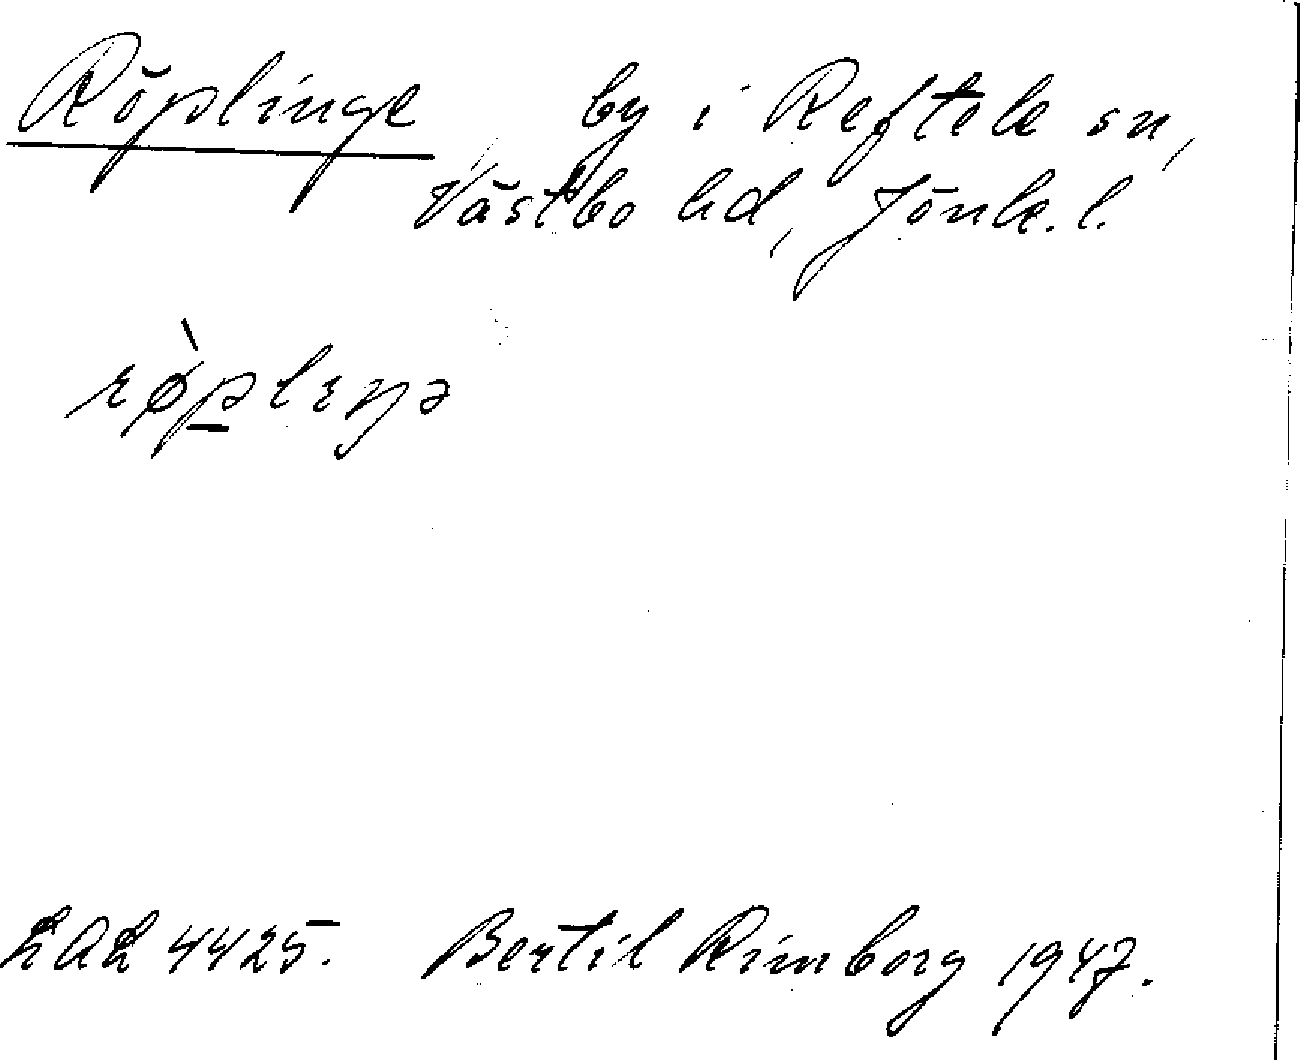 Röplinge by i Reftele sn,
Västbo hd, Jönk. l.
rø̀plɩŋə
LAL 4425. Bertil Rimborg 1947.